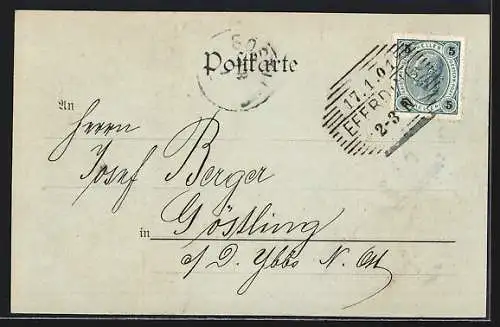 Postkarte
5 5
5 5
17.1.01
EFERDI
2-3 N
An
Herrn
Josef Berger
in Göstling
a/D. Ybbs N. Öst